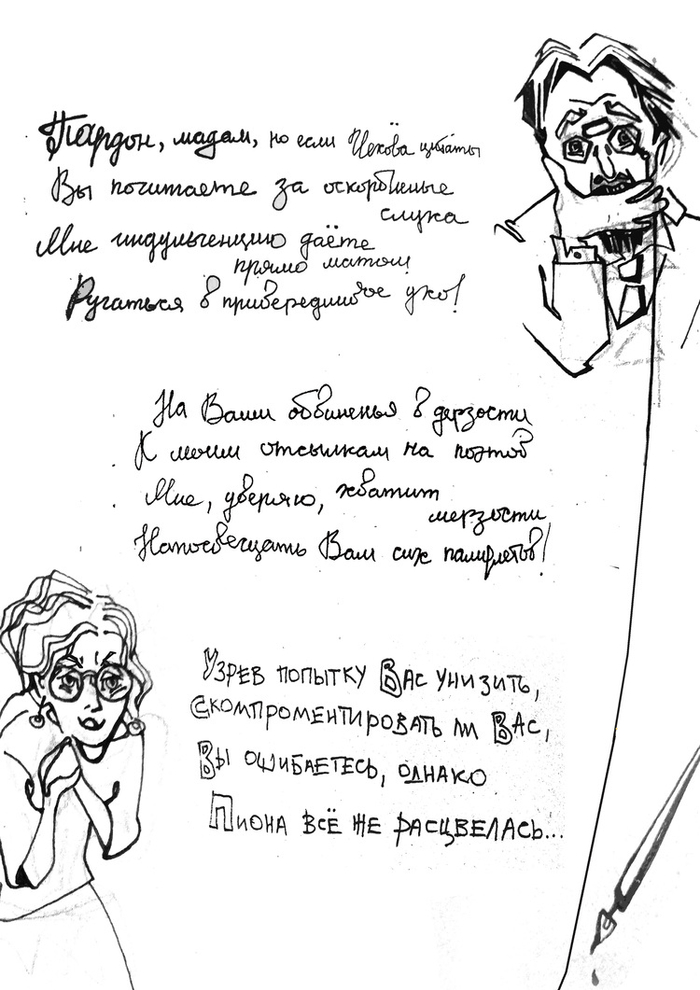 Пардон, мадам, но если Чехова цитаты
Вы почитаете за оскорбленье
слуха
Мне индульгенцию даёте
прямо матом
Ругаться в привередливое ухо!
На Ваши обвиненья в дерзости
К моим отсылкам на поэтов
Мне, уверяю, хватит
мерзости
Напосвещать Вам сих памфлетов!
Узрев попытку Вас унизить,
Скомпроментировать ли Вас,
Вы ошибаетесь, однако
Пиона всё же расцвелась...